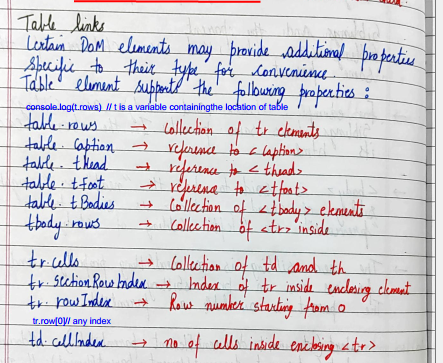 Table links
Certain DOM elements may provide additional properties
specific to their type for convenience.
Table element supports the following properties :
console.log(t.rows) // t is a variable containingthe location of table
table.rows → collection of tr elements
table.caption → reference to <caption>
table.thead → reference to <thead>
table.tfoot → reference to <tfoot>
table.tBodies → collection of <tbody> elements
tbody.rows → collection of <tr> inside
tr.cells → collection of td and th
tr.sectionRowIndex → Index of tr inside enclosing element
tr.rowIndex → Row number starting from 0
tr.row[0]// any index
td.cellIndex → no of cells inside enclosing <tr>